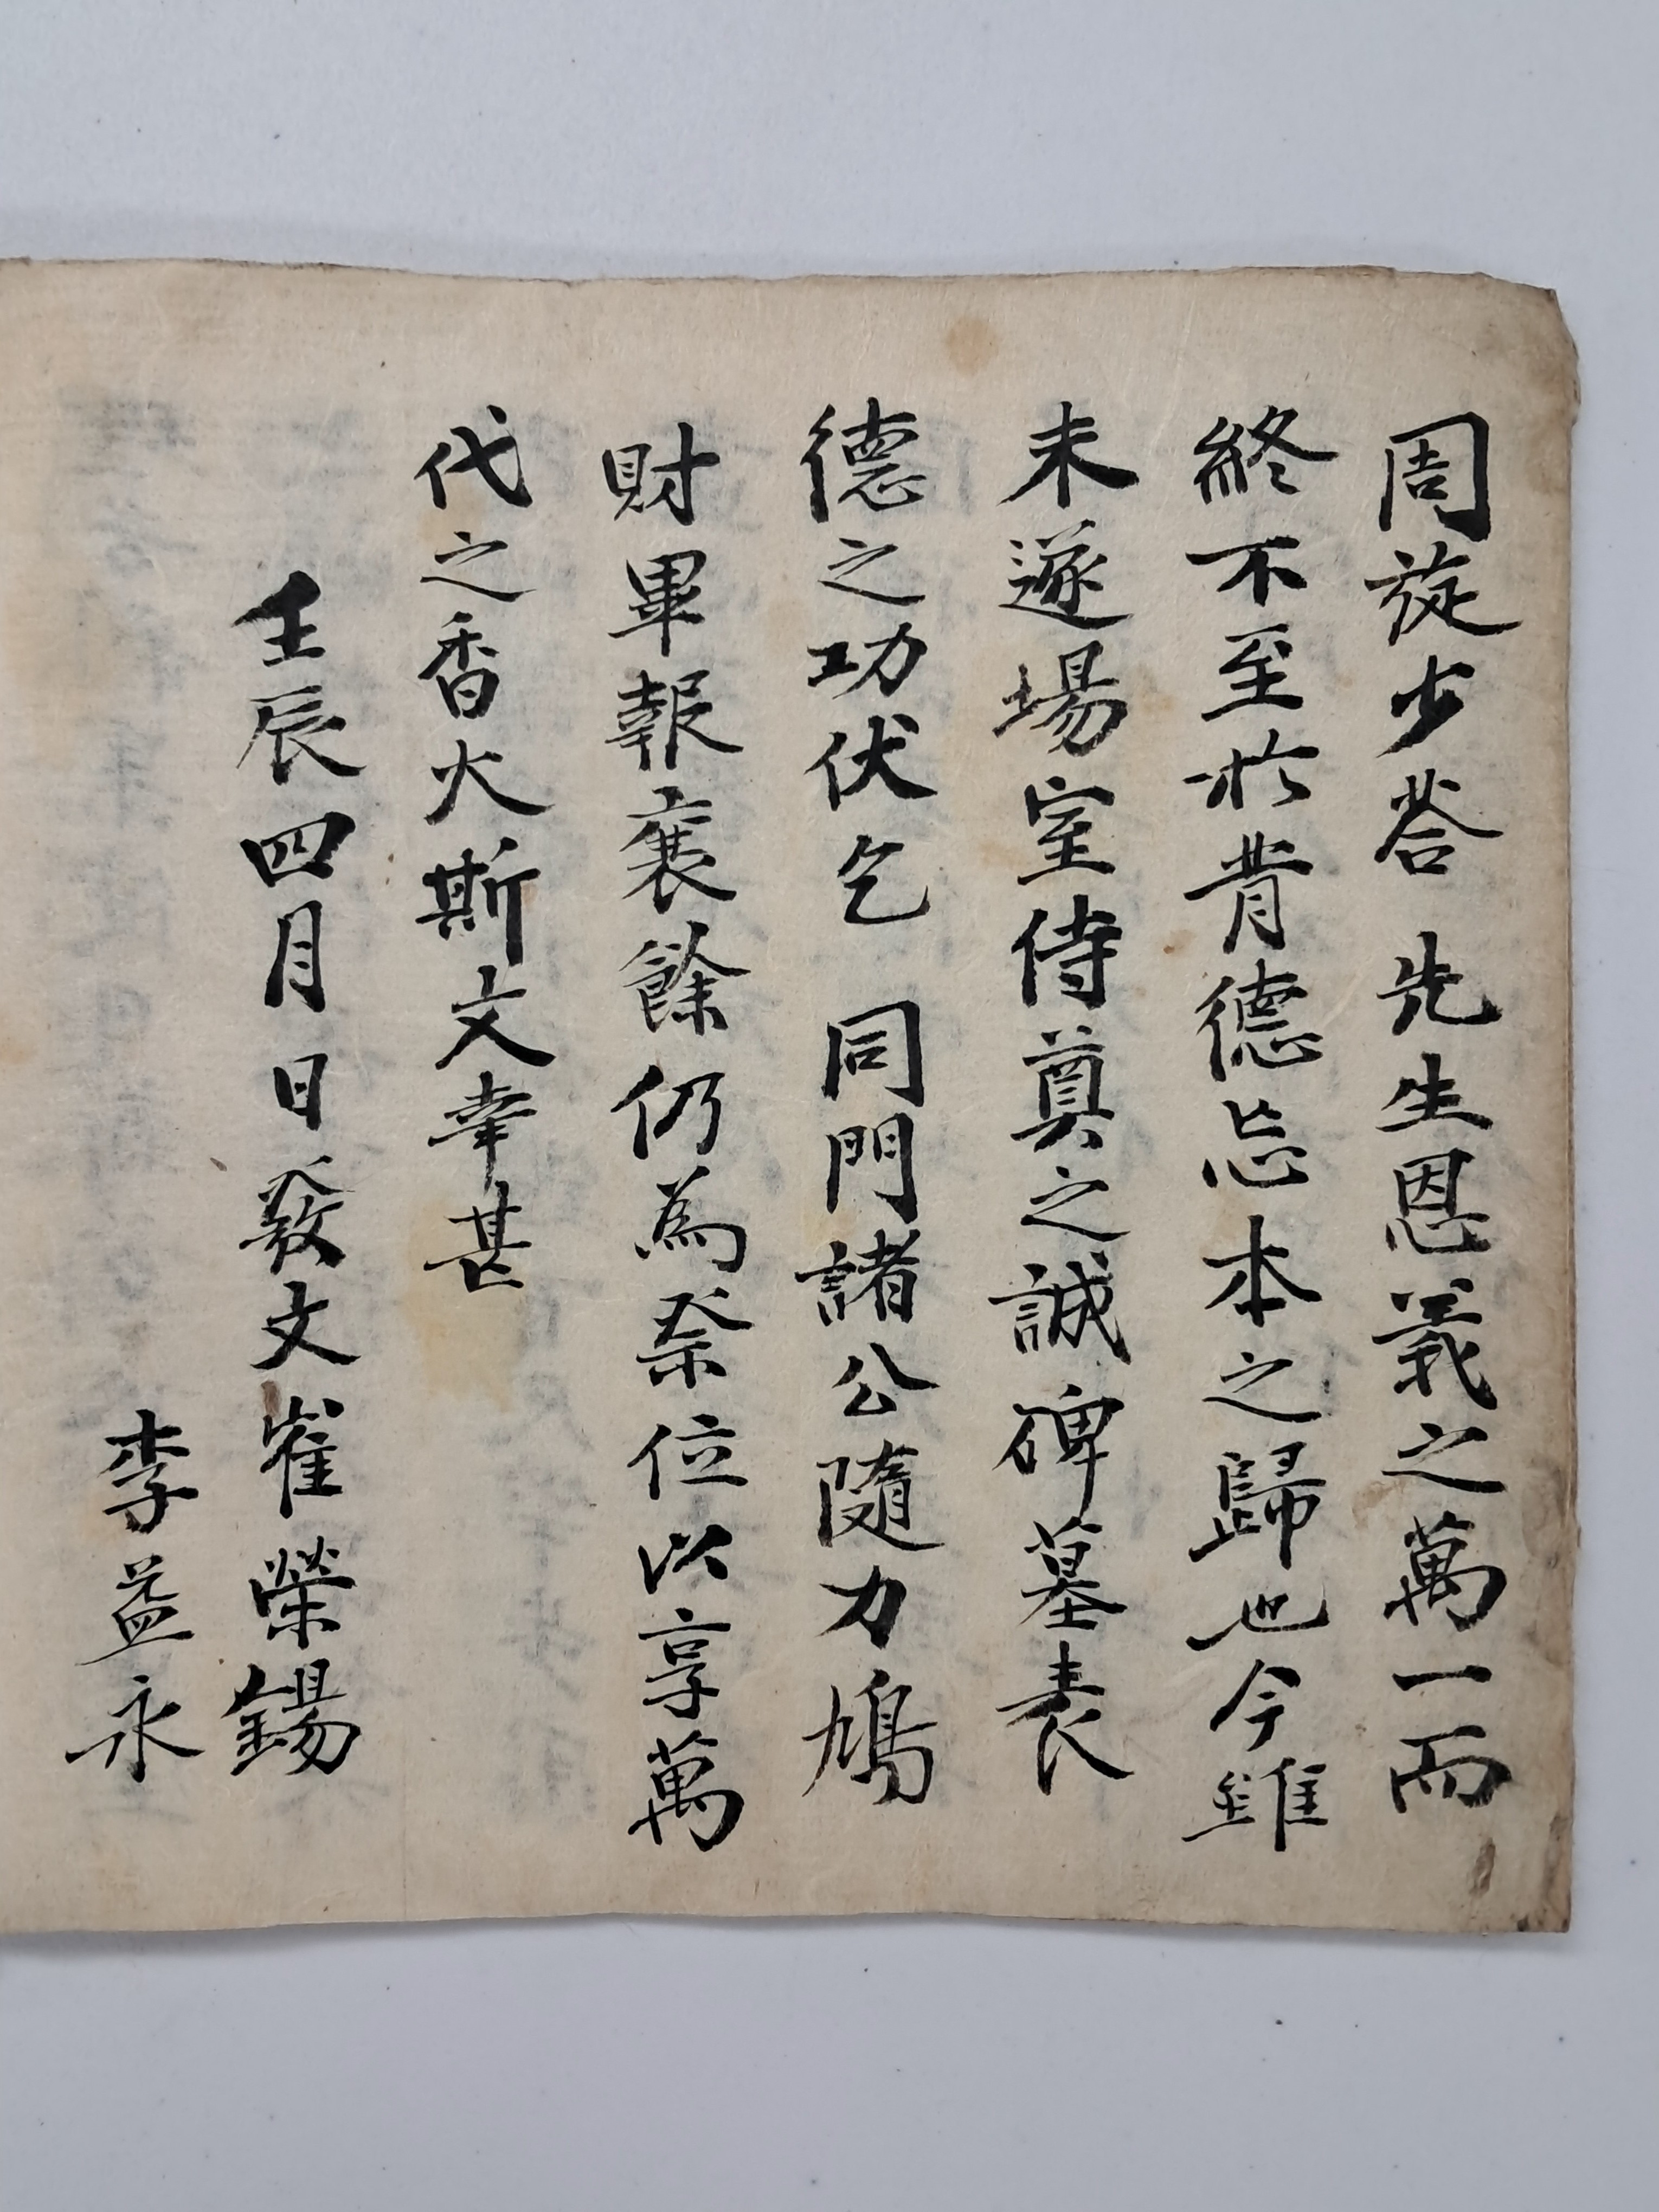 周旋少答 先生恩義之萬一而
終不至於背德忘本之歸也今雖
未遂場室侍奠之誠碑墓表
德之功伏乞 同門諸公隨力鳩
財畢報襄餘仍爲祭位以享萬
代之香火斯文幸甚
壬辰四月日發文崔榮錫
李益永